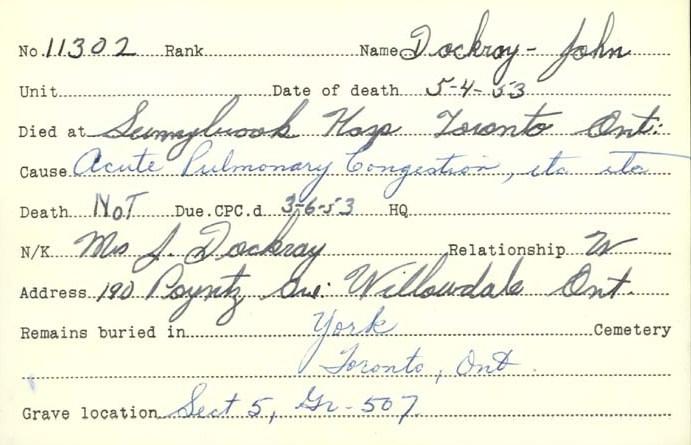 No. 11302 Rank Name Dockray - John
Unit Date of death 5-4-53
Died at Sunnybrook Hosp Toronto Ont.
Cause Acute Pulmonary Congestion, etc etc
Death NOT Due.CPC.d 3-6-53 HQ
N/K Mrs J. Dockray Relationship W
Address 190 Poyntz Ave: Willowdale Ont.
Remains buried in York Cemetery
Toronto, Ont.
Grave location Sect 5, Gr-507